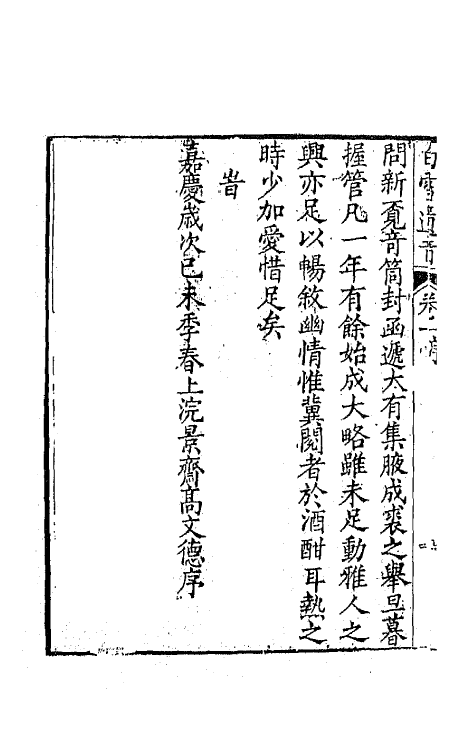 白雪遺音 卷一 序
問新覔竒筒封函遞大有集腋成裘之舉旦暮
握管凡一年有餘始成大略雖未足動雅人之
興亦足以暢敘幽情惟冀閱者於酒酣耳熱之
時少加愛惜足矣
旹
嘉慶歲次己未季春上浣景齋高文德序